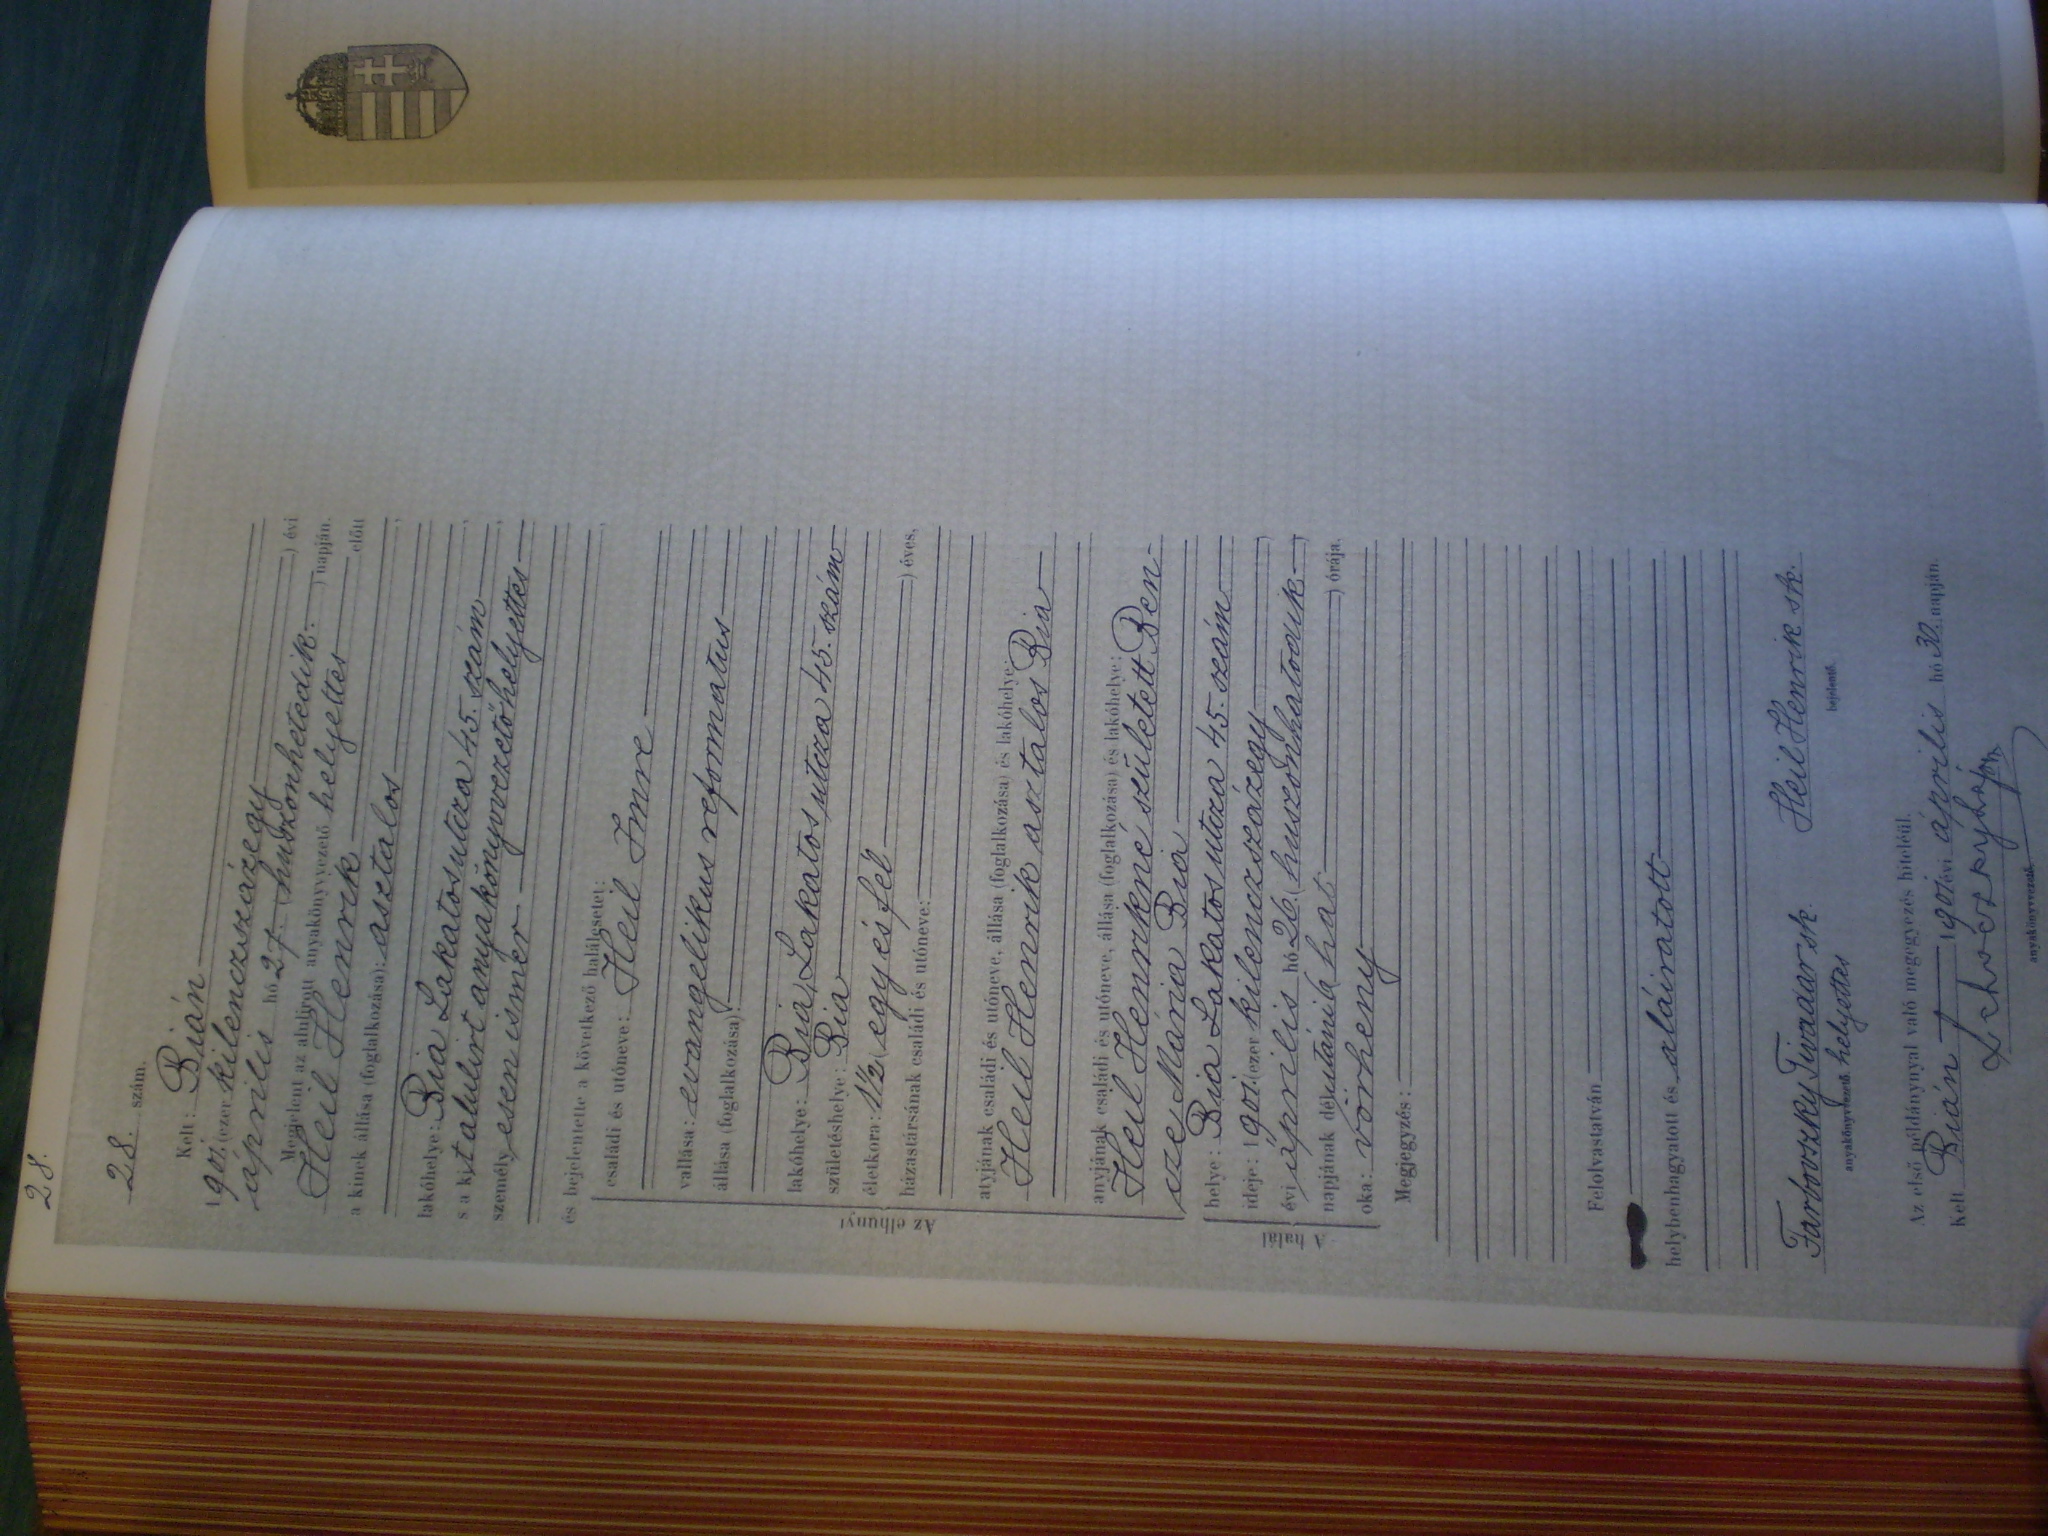 28.
28. szám.
Kelt: Bián
1901. (ezer kilenczszázegy
április hó 27. (huszonhetedik.) évi
napján.
Megjelent az alulirott anyakönyvvezető helyettes előtt
Heil Henrik
a kinek állása (foglalkozása): asztalos
lakóhelye: Bia Lakatos utcza 45. szám
s a kit alulirt anyakönyvvezető helyettes
személyesen ismer.
és bejelentette a következő halálesetet:
Az elhunyt
családi és utóneve: Heil Imre
vallása: evangelikus reformatus
állása (foglalkozása):
lakóhelye: Bia, Lakatos utcza 45. szám
születéshelye: Bia
életkora: 1½ (egy és fél) éves,
házastársának családi és utóneve:
atyjának családi és utóneve, állása (foglalkozása) és lakóhelye:
Heil Henrik asztalos Bia
anyjának családi és utóneve, állása (foglalkozása) és lakóhelye:
Heil Henrikné született Ben-
sze Mária Bia
A halál
helye: Bia Lakatos utcza 45. szám
ideje: 1901. (ezer kilenczszázegy)
évi április hó 26. (huszonhatodik)
napjának délutánia (hat) órája.
oka: vörheny
Megjegyzés:
Felolvastatván
helybenhagyatott és aláiratott
Farbovszky Tivadar sk. Heil Henrik sk.
anyakönyvvezető. helyettes bejelentő.
Az első példánynyal való megegyzés hiteléül.
Kelt Bián 1901 évi április hó 30. napján.
anyakönyvvezető.